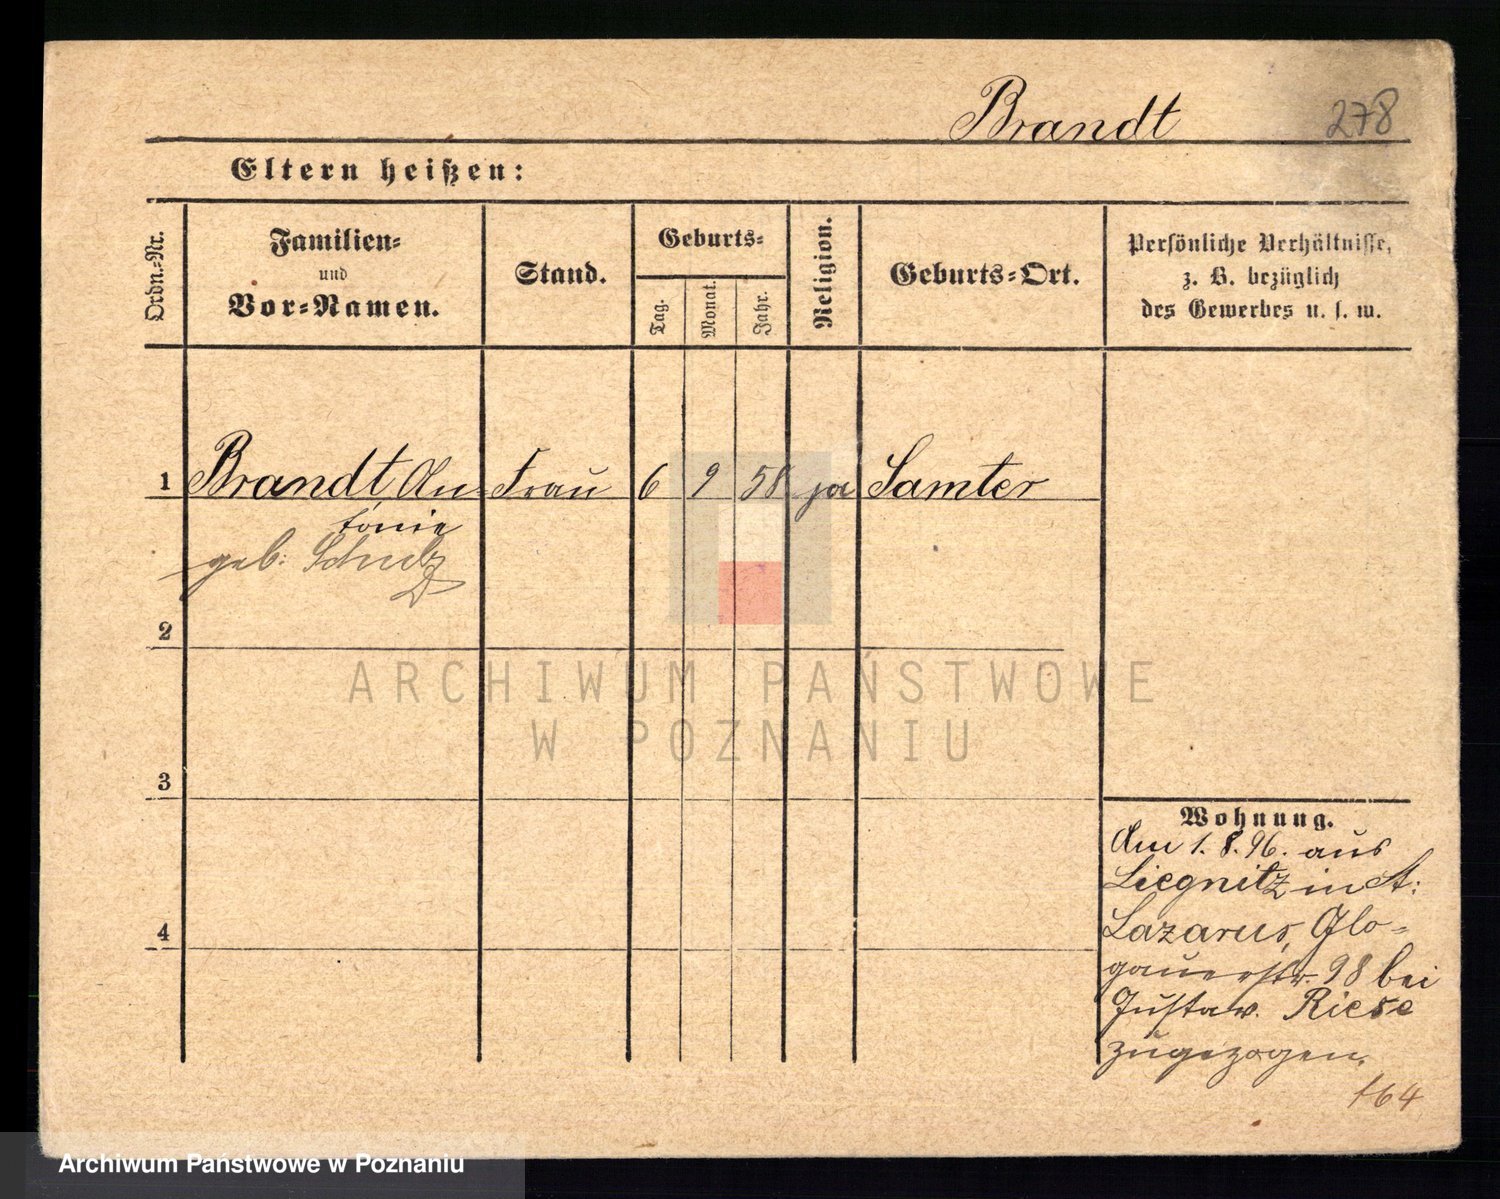 Brandt 278
Eltern heißen:
Ordn.-Nr.
Familien-
und
Vor-Namen.
Stand.
Geburts-
Tag.
Monat.
Jahr.
Religion.
Geburts-Ort.
Persönliche Verhältnisse,
z. B. bezüglich
des Gewerbes u. s. w.
1 Brandt An- Frau 6 9 58 ja Samter
tonie
geb: Schulz
2
3
4
Wohnung.
Am 1. 8. 96. aus
Liegnitz in St:
Lazarus, Glo-
gauerstr. 98 bei
Gustav. Riese
zugezogen.
164
ARCHIWUM PAŃSTWOWE
W POZNANIU
Archiwum Państwowe w Poznaniu